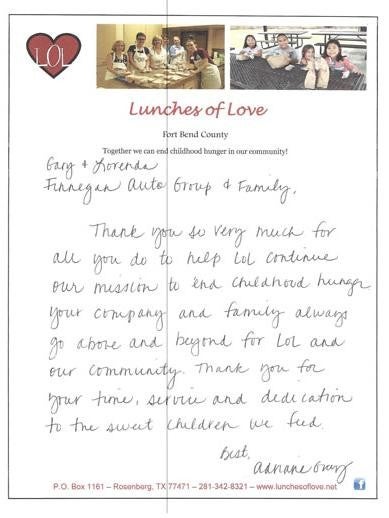 LOL
Lunches of Love
Fort Bend County
Together we can end childhood hunger in our community!
Gary & Lorenda
Finnegan Auto Group & Family,
Thank you so very much for
all you do to help LoL continue
our mission to end childhood hunger
your company and family always
go above and beyond for LoL and
our community. Thank you for
your time, service and dedication
to the sweet children we feed.
Best,
Adriane
P.O. Box 1161 – Rosenberg, TX 77471 – 281-342-8321 – www.lunchesoflove.net
f